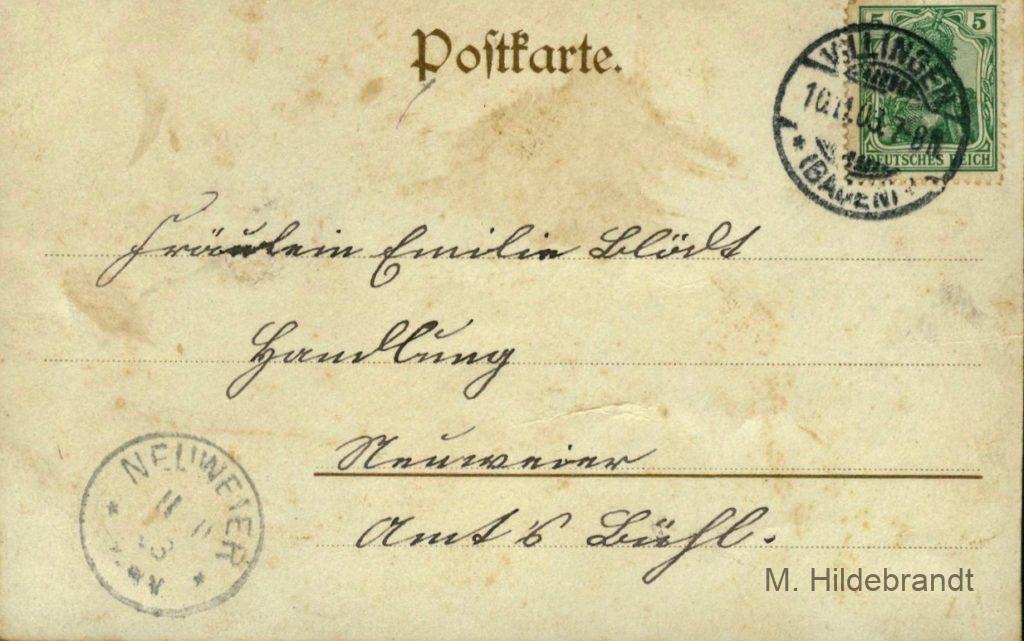 Postkarte.
5 5
DEUTSCHES REICH
VILLINGEN
10.11.03. 7-8N.
* (BADEN) *
Fräulein Emilie Blödt
Handlung
Neuweier
Amt's Bühl.
NEUWEIER
11 11
M. Hildebrandt